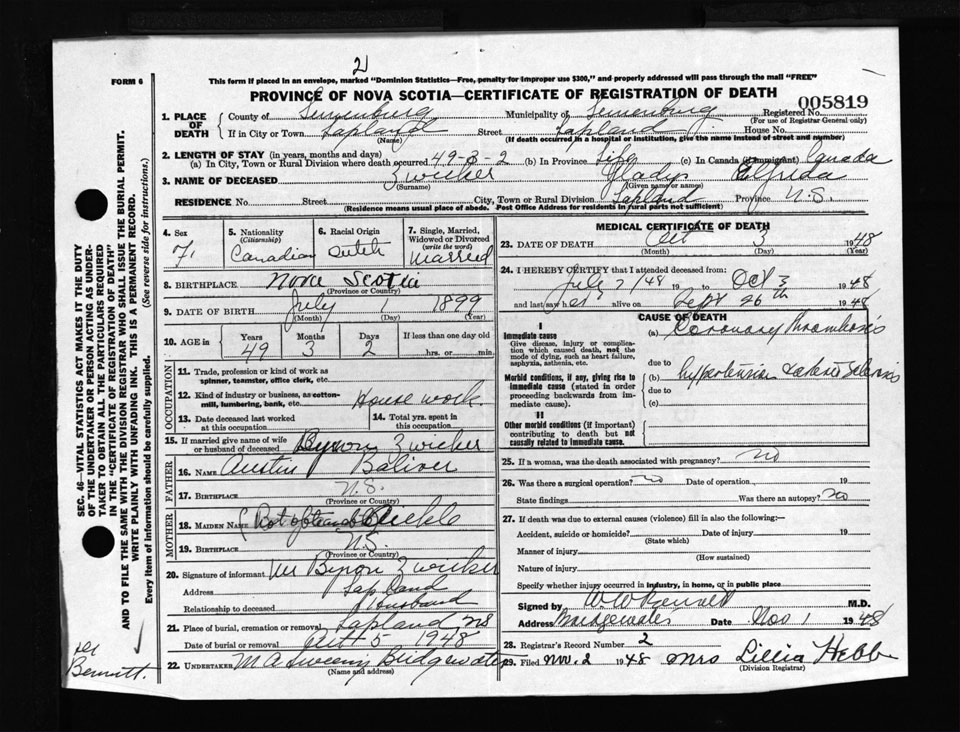 2
FORM 6
This form if placed in an envelope, marked "Dominion Statistics—Free, penalty for improper use $300," and properly addressed will pass through the mail "FREE"
PROVINCE OF NOVA SCOTIA—CERTIFICATE OF REGISTRATION OF DEATH
005819
1. PLACE OF DEATH { County of Lunenburg Municipality of Lunenburg Registered No.
(For use of Registrar General only)
If in City or Town Lapland Street Lapland House No.
(Name) (If death occurred in a hospital or institution, give the name instead of street and number)
2. LENGTH OF STAY (in years, months and days)
(a) In City, Town or Rural Division where death occurred 49-3-2 (b) In Province Life (c) In Canada (if immigrant) Canada
3. NAME OF DECEASED Zwicker Gladys Elfreda
(Surname) (Given name or names)
RESIDENCE No. Street City, Town or Rural Division Lapland Province N.S.
(Residence means usual place of abode. Post Office Address for residents in rural parts not sufficient)
4. Sex F.
5. Nationality (Citizenship) Canadian
6. Racial Origin Dutch
7. Single, Married, Widowed or Divorced (write the word) Married
8. BIRTHPLACE Nova Scotia
(Province or Country)
9. DATE OF BIRTH July 1 1899
(Month) (Day) (Year)
10. AGE in Years Months Days If less than one day old
49 3 2 hrs. or min.
OCCUPATION
11. Trade, profession or kind of work as spinner, teamster, office clerk, etc.
12. Kind of industry or business, as cotton-mill, lumbering, bank, etc. House work
13. Date deceased last worked at this occupation
14. Total yrs. spent in this occupation
15. If married give name of wife or husband of deceased Byron Zwicker
FATHER
16. NAME Austin Boliver
17. BIRTHPLACE N.S.
(Province or Country)
MOTHER
18. MAIDEN NAME
19. BIRTHPLACE N.S.
(Province or Country)
20. Signature of informant Mr Byron Zwicker
Address Lapland
Relationship to deceased Husband
21. Place of burial, cremation or removal Lapland N S
Date of burial or removal Oct 5 1948
22. UNDERTAKER M A Sweeny Bridgewater
(Name and address)
MEDICAL CERTIFICATE OF DEATH
23. DATE OF DEATH Oct 3 1948
(Month) (Day) (Year)
24. I HEREBY CERTIFY that I attended deceased from
July 7/48 19 to Oct 3 1948
and last saw her alive on Sept 26th 1948
CAUSE OF DEATH
I
Immediate cause
Give disease, injury or complication which caused death, not the mode of dying, such as heart failure, asphyxia, asthenia, etc.
(a) Coronary Thrombosis
due to
Morbid conditions, if any, giving rise to immediate cause (stated in order proceeding backwards from immediate cause).
(b) hypertension
due to
(c)
II
Other morbid conditions (if important) contributing to death but not causally related to immediate cause.
25. If a woman, was the death associated with pregnancy? no
26. Was there a surgical operation? no Date of operation 19
State findings Was there an autopsy? no
27. If death was due to external causes (violence) fill in also the following:—
Accident, suicide or homicide? Date of injury 19
(State which)
Manner of injury
(How sustained)
Nature of injury
Specify whether injury occurred in industry, in home, or in public place
Signed by M.D.
Address Bridgewater Date Nov 1 1948
28. Registrar's Record Number 2
29. Filed Nov. 2 1948 Mrs Lillia Hebb
(Division Registrar)
SEC. 46—VITAL STATISTICS ACT MAKES IT THE DUTY
OF THE UNDERTAKER OR PERSON ACTING AS UNDER-
TAKER TO OBTAIN ALL THE PARTICULARS REQUIRED
IN THE "CERTIFICATE OF REGISTRATION OF DEATH"
AND TO FILE THE SAME WITH THE DIVISION REGISTRAR WHO SHALL ISSUE THE BURIAL PERMIT.
WRITE PLAINLY WITH UNFADING INK. THIS IS A PERMANENT RECORD.
Every item of Information should be carefully supplied. (See reverse side for instructions.)
Bennett.